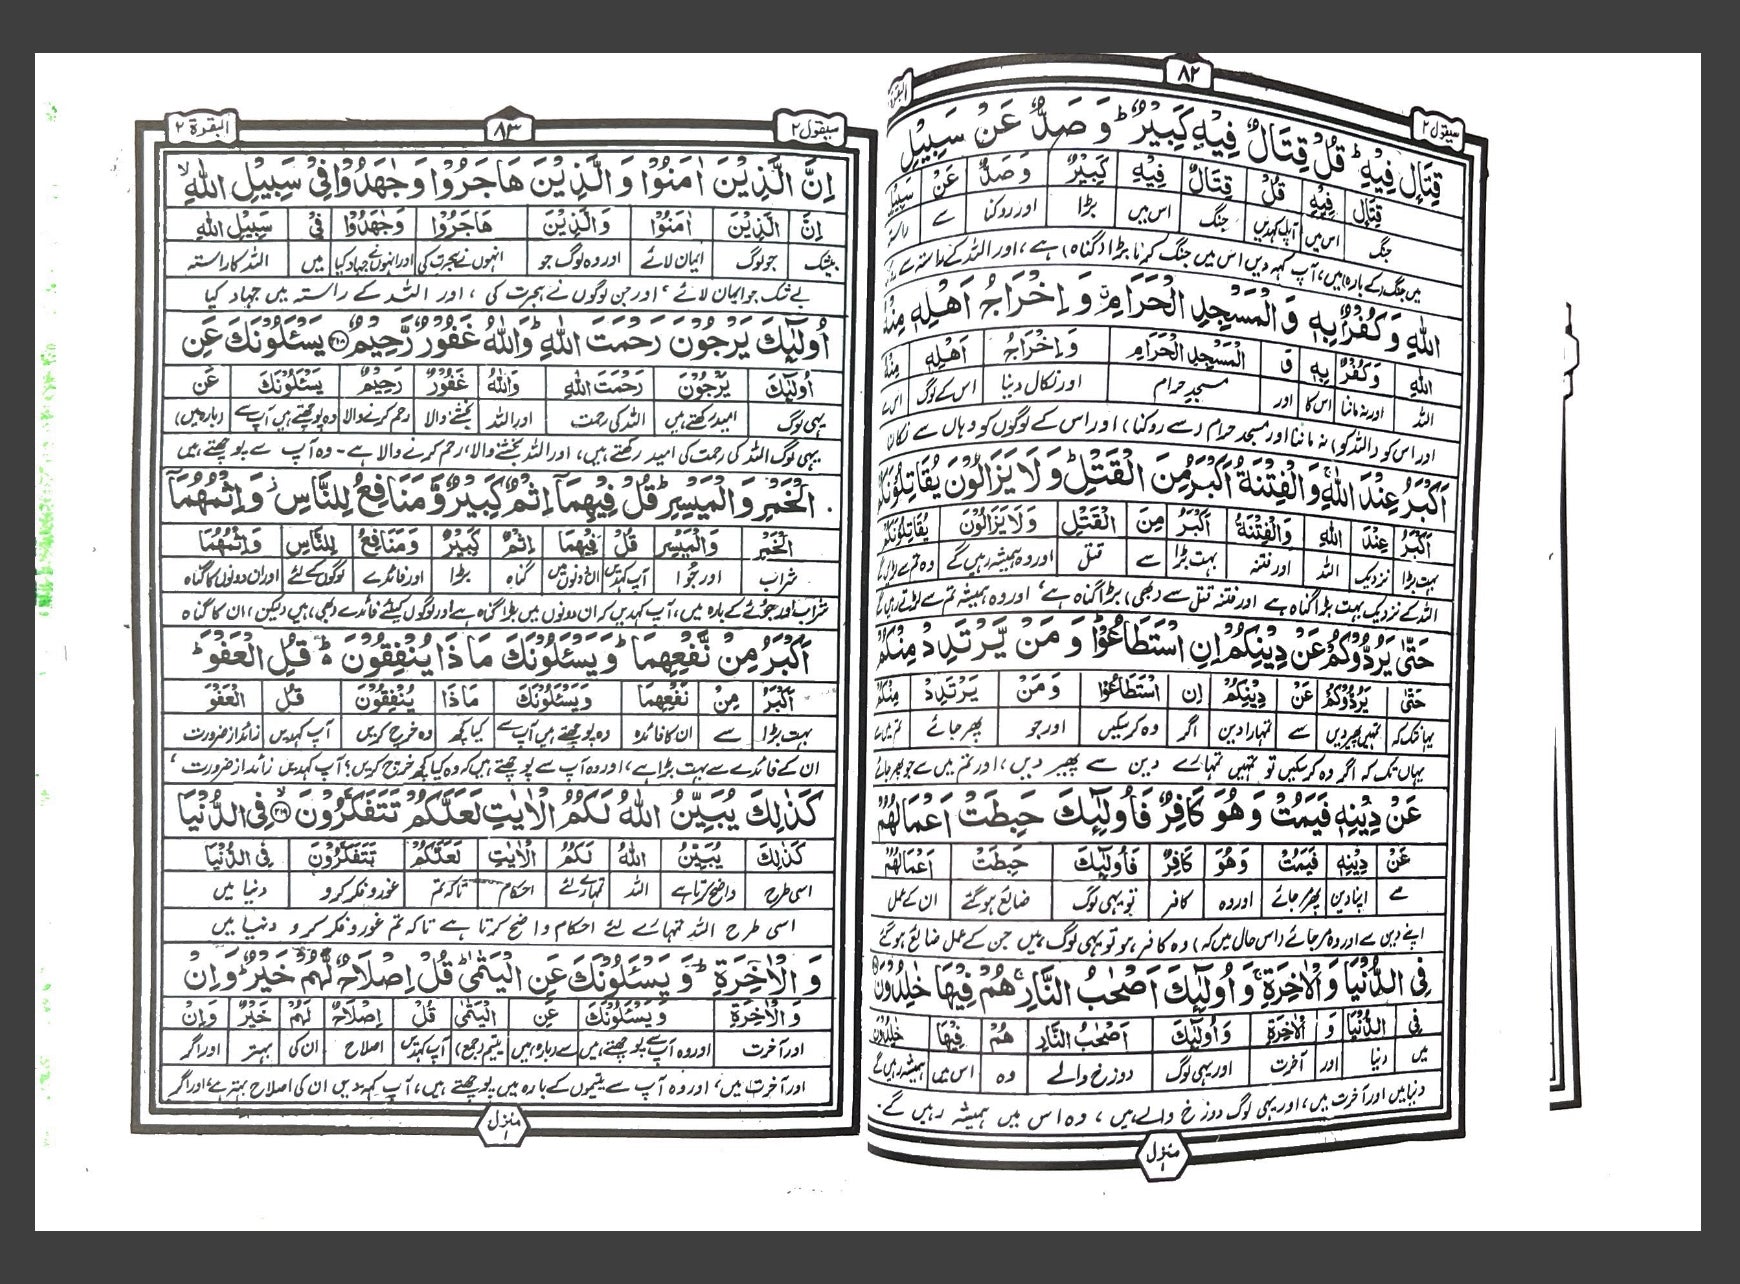 سیقول ۲
۸۲
قِتَالٍ فِیْهِ ؕ قُلْ قِتَالٌ فِیْهِ كَبِیْرٌ ؕ وَ صَدٌّ عَنْ سَبِیْلِ
قِتَالٍ فِیْهِ قُلْ قِتَالٌ فِیْهِ كَبِیْرٌ وَ صَدٌّ عَنْ سَبِیْلِ
جنگ اس میں آپ کہدیں جنگ اس میں بڑا اور روکنا سے راستہ
میں جنگ کے بارہ میں، آپ کہہ دیں اس میں جنگ کرنا بڑا (گناہ) ہے، اور اللہ کے راستہ سے
اللّٰهِ وَ كُفْرٌۢ بِهٖ وَ الْمَسْجِدِ الْحَرَامِ ۗ وَ اِخْرَاجُ اَهْلِهٖ مِنْهُ
اللّٰهِ وَ كُفْرٌ بِهٖ وَ الْمَسْجِدِ الْحَرَامِ وَ اِخْرَاجُ اَهْلِهٖ مِنْهُ
اللہ اور نہ ماننا اس کا اور مسجد حرام اور نکال دینا اس کے لوگ اس سے
اور اس کو (اللہ کو) نہ ماننا اور مسجد حرام (سے روکنا) اور اس کے لوگوں کو وہاں سے نکالنا
اَكْبَرُ عِنْدَ اللّٰهِ ۚ وَ الْفِتْنَةُ اَكْبَرُ مِنَ الْقَتْلِ ؕ وَ لَا یَزَالُوْنَ یُقَاتِلُوْنَكُمْ
اَكْبَرُ عِنْدَ اللّٰهِ وَالْفِتْنَةُ اَكْبَرُ مِنَ الْقَتْلِ وَلَا یَزَالُوْنَ یُقَاتِلُوْنَكُمْ
بہت بڑا نزدیک اللہ اور فتنہ بہت بڑا سے قتل اور وہ ہمیشہ رہیں گے وہ تم سے لڑیں گے
اللہ کے نزدیک بہت بڑا گناہ ہے اور فتنہ قتل سے (بھی) بڑا گناہ ہے، اور وہ ہمیشہ تم سے لڑتے رہیں گے
حَتّٰى یَرُدُّوْكُمْ عَنْ دِیْنِكُمْ اِنِ اسْتَطَاعُوْا ؕ وَ مَنْ یَّرْتَدِدْ مِنْكُمْ
حَتّٰى یَرُدُّوْكُمْ عَنْ دِیْنِكُمْ اِنِ اسْتَطَاعُوْا وَ مَنْ یَرْتَدِدْ مِنْكُمْ
یہانتک کہ تمہیں پھیر دیں سے تمہارا دین اگر وہ کر سکیں اور جو پھر جائے تم میں سے
یہاں تک کہ اگر وہ کر سکیں تو تمہیں تمہارے دین سے پھیر دیں، اور تم میں سے جو پھر جائے
عَنْ دِیْنِهٖ فَیَمُتْ وَ هُوَ كَافِرٌ فَاُولٰٓئِكَ حَبِطَتْ اَعْمَالُهُمْ
عَنْ دِیْنِهٖ فَیَمُتْ وَهُوَ كَافِرٌ فَاُولٰٓئِكَ حَبِطَتْ اَعْمَالُهُمْ
سے اپنا دین پھر جائے اور وہ کافر تو یہی لوگ ضائع ہو گئے ان کے عمل
اپنے دین سے اور وہ مر جائے (اس حال میں کہ) وہ کافر ہو تو یہی لوگ ہیں جن کے عمل ضائع ہو گئے
فِی الدُّنْیَا وَ الْاٰخِرَةِ ۚ وَ اُولٰٓئِكَ اَصْحٰبُ النَّارِ ۚ هُمْ فِیْهَا خٰلِدُوْنَ
فِی الدُّنْیَا وَ الْاٰخِرَةِ وَ اُولٰٓئِكَ اَصْحٰبُ النَّارِ هُمْ فِیْهَا خٰلِدُوْنَ
میں دنیا اور آخرت اور یہی لوگ دوزخ والے وہ اس میں ہمیشہ رہیں گے
دنیا میں اور آخرت میں، اور یہی لوگ دوزخ والے ہیں، وہ اس میں ہمیشہ رہیں گے۔
منزل ۱
سیقول ۲
۸۳
البقرة ۲
اِنَّ الَّذِیْنَ اٰمَنُوْا وَ الَّذِیْنَ هَاجَرُوْا وَ جٰهَدُوْا فِیْ سَبِیْلِ اللّٰهِ ۙ
اِنَّ الَّذِیْنَ اٰمَنُوْا وَالَّذِیْنَ هَاجَرُوْا وَجٰهَدُوْا فِیْ سَبِیْلِ اللّٰهِ
بیشک جو لوگ ایمان لائے اور وہ لوگ جو انہوں نے ہجرت کی اور انہوں نے جہاد کیا میں اللہ کا راستہ
بے شک جو ایمان لائے، اور جن لوگوں نے ہجرت کی، اور اللہ کے راستہ میں جہاد کیا
اُولٰٓئِكَ یَرْجُوْنَ رَحْمَتَ اللّٰهِ ؕ وَاللّٰهُ غَفُوْرٌ رَّحِیْمٌ ۲۱۸ یَسْـَٔلُوْنَكَ عَنِ
اُولٰٓئِكَ یَرْجُوْنَ رَحْمَتَ اللّٰهِ وَاللّٰهُ غَفُوْرٌ رَحِیْمٌ یَسْـَٔلُوْنَكَ عَنِ
یہی لوگ امید رکھتے ہیں اللہ کی رحمت اور اللہ بخشنے والا رحم کرنے والا وہ پوچھتے ہیں آپ سے (بارہ میں)
یہی لوگ اللہ کی رحمت کی امید رکھتے ہیں، اور اللہ بخشنے والا، رحم کرنے والا ہے۔ وہ آپ سے پوچھتے ہیں
الْخَمْرِ وَ الْمَیْسِرِ ؕ قُلْ فِیْهِمَاۤ اِثْمٌ كَبِیْرٌ وَّ مَنَافِعُ لِلنَّاسِ ؗ وَ اِثْمُهُمَاۤ
الْخَمْرِ وَالْمَیْسِرِ قُلْ فِیْهِمَا اِثْمٌ كَبِیْرٌ وَمَنَافِعُ لِلنَّاسِ وَ اِثْمُهُمَا
شراب اور جوا آپ کہدیں ان دونوں میں گناہ بڑا اور فائدے لوگوں کے لئے اور ان دونوں کا گناہ
شراب اور جوئے کے بارہ میں، آپ کہدیں کہ ان دونوں میں بڑا گناہ ہے اور لوگوں کیلئے فائدے (بھی) ہیں (لیکن) ان کا گناہ
اَكْبَرُ مِنْ نَّفْعِهِمَا ؕ وَ یَسْـَٔلُوْنَكَ مَا ذَا یُنْفِقُوْنَ ؕ قُلِ الْعَفْوَ ؕ
اَكْبَرُ مِنْ نَفْعِهِمَا وَیَسْـَٔلُوْنَكَ مَاذَا یُنْفِقُوْنَ قُلِ الْعَفْوَ
بہت بڑا سے ان کا فائدہ وہ پوچھتے ہیں آپ سے کیا کچھ وہ خرچ کریں آپ کہدیں زائد از ضرورت
ان کے فائدے سے بہت بڑا ہے، اور وہ آپ سے پوچھتے ہیں کہ وہ کیا کچھ خرچ کریں؟ آپ کہدیں زائد از ضرورت،
كَذٰلِكَ یُبَیِّنُ اللّٰهُ لَكُمُ الْاٰیٰتِ لَعَلَّكُمْ تَتَفَكَّرُوْنَ ۙ ۲۱۹ فِی الدُّنْیَا
كَذٰلِكَ یُبَیِّنُ اللّٰهُ لَكُمُ الْاٰیٰتِ لَعَلَّكُمْ تَتَفَكَّرُوْنَ فِی الدُّنْیَا
اسی طرح واضح کرتا ہے اللہ تمہارے لئے احکام تاکہ تم غور و فکر کرو دنیا میں
اسی طرح اللہ تمہارے لئے احکام واضح کرتا ہے تاکہ تم غور و فکر کرو دنیا میں
وَ الْاٰخِرَةِ ؕ وَ یَسْـَٔلُوْنَكَ عَنِ الْیَتٰمٰى ؕ قُلْ اِصْلَاحٌ لَّهُمْ خَیْرٌ ؕ وَ اِنْ
وَ الْاٰخِرَةِ وَیَسْـَٔلُوْنَكَ عَنِ الْیَتٰمٰى قُلْ اِصْلَاحٌ لَهُمْ خَیْرٌ وَ اِنْ
اور آخرت اور وہ آپ سے پوچھتے ہیں سے (بارہ) میں یتیم (جمع) آپ کہدیں اصلاح ان کی بہتر اور اگر
اور آخرت میں، اور وہ آپ سے یتیموں کے بارہ میں پوچھتے ہیں، آپ کہدیں ان کی اصلاح بہتر ہے، اور اگر
منزل ۱